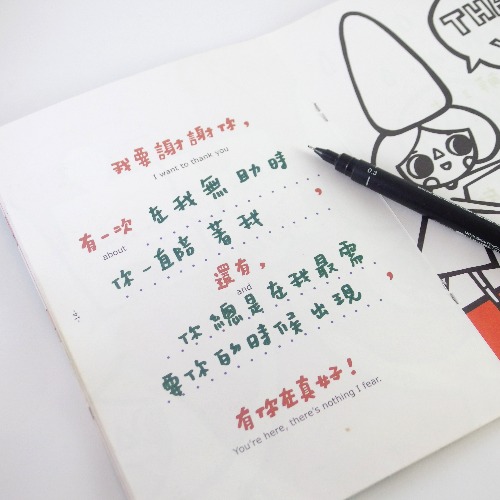 THA
我要謝謝你,
I want to thank you
有一次 在我無助時
about
你一直陪著我,
還有,
and
你總是在我最需
要你的時候出現,
有你在真好!
You're here, there's nothing I fear.